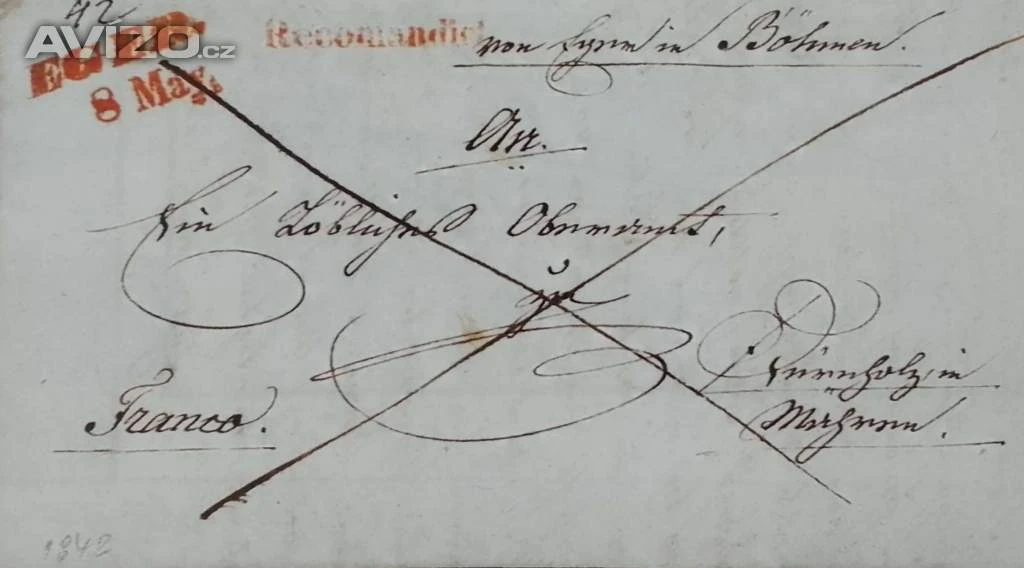 42
AVIZO.cz
EGER
8 May.
Recomandirt
von Eger in Böhmen.
An
Ein Löbliches Oberamt,
zu
Dürnholz, in
Mähren.
Franco.
1842